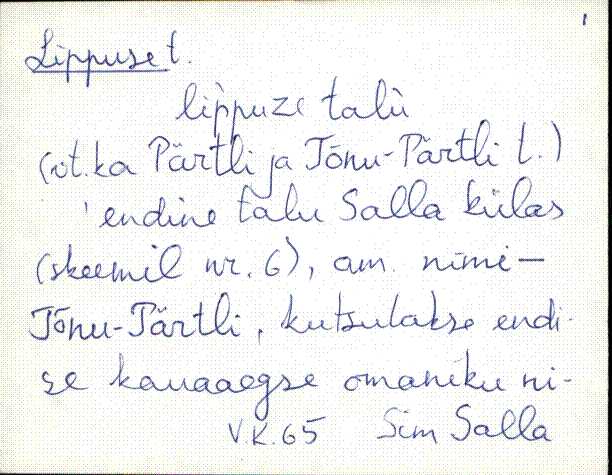 1
Lippuse t.
lìppuze talù
(vt. ka Pärtli ja Tõnu-Pärtli t.)
endine talu Salla külas
(skeemil nr. 6), am. nimi—
Tõnu-Pärtli, kutsutakse endi-
se kauaaegse omaniku ni-
V.K. 65 Sim Salla